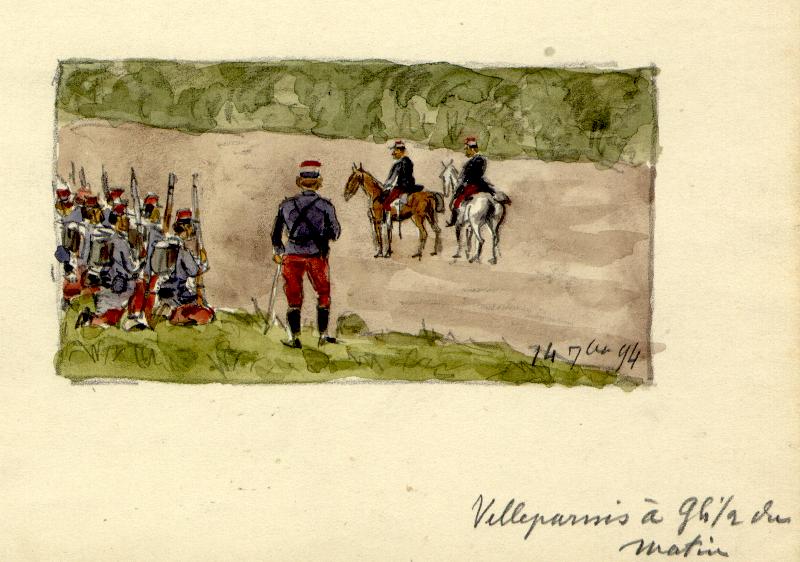 14 7bre 94
Villeparisis à 9h 1/2 du
matin